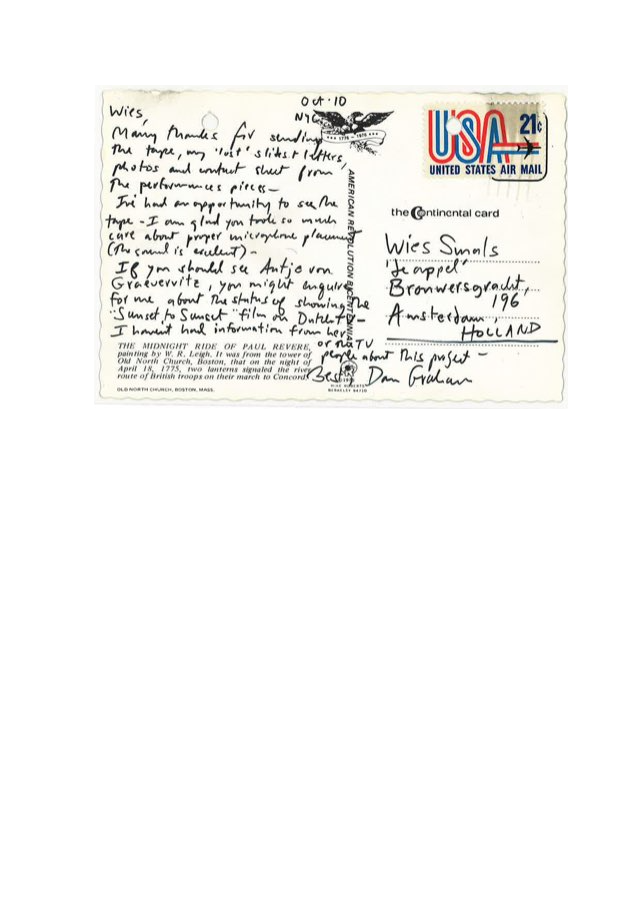 Oct. 10
NYC
Wies,
Many thanks for sending
the tape, my 'lost' slides + letters,
photos and contact sheet from
the performances pieces —
I've had an opportunity to see the
tape - I am glad you took so much
care about proper microphone placement
(the sound is excellent) -
If you should see Antje von
Graevenitz, you might enquire
for me about the status of showing the
"Sunset to Sunset" film on Dutch TV -
I havent had information from her
or the TV
people about this project -
Best Dan Graham
1776 - 1976
AMERICAN REVOLUTION BICENTENNIAL
THE MIDNIGHT RIDE OF PAUL REVERE,
painting by W. R. Leigh. It was from the tower of
Old North Church, Boston, that on the night of
April 18, 1775, two lanterns signaled the river
route of British troops on their march to Concord.
OLD NORTH CHURCH, BOSTON, MASS.
MIKE ROBERTS
BERKELEY 94710
USA 21c
UNITED STATES AIR MAIL
the Continental card
Wies Smals
'de appel'
Brouwersgracht,
196
Amsterdam,
HOLLAND